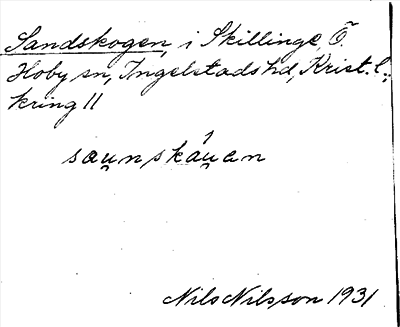 Sandskogen, i Skillinge, Ö.
Hoby sn, Ingelstads hd, Krist. l.,
kring 11
sau̯nskáu̯an
Nils Nilsson 1931